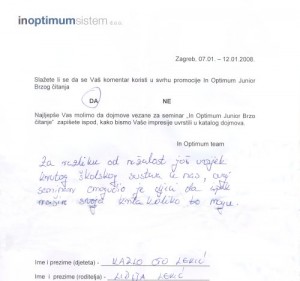 inoptimumsistem d.o.o.
Zagreb, 07.01. – 12.01.2006
Slažete li se da se Vaš komentar koristi u svrhu promocije In Optimum Junior
Brzog čitanja
DA NE
Najljepše Vas molimo da dojmove vezane za seminar „In Optimum Junior Brzo
čitanje" zapišete ispod, kako bismo Vaše impresije uvrstili u katalog dojmova.
In Optimum team
Za razliku od nažalost još uvijek
krutog školskog sustava u nas, ovaj
seminar omogućio je djeci da uče
na svoga koliko to mogu.
Ime i prezime (djeteta) -
Ime i prezime (roditelja) - LIDIJA LEKIĆ